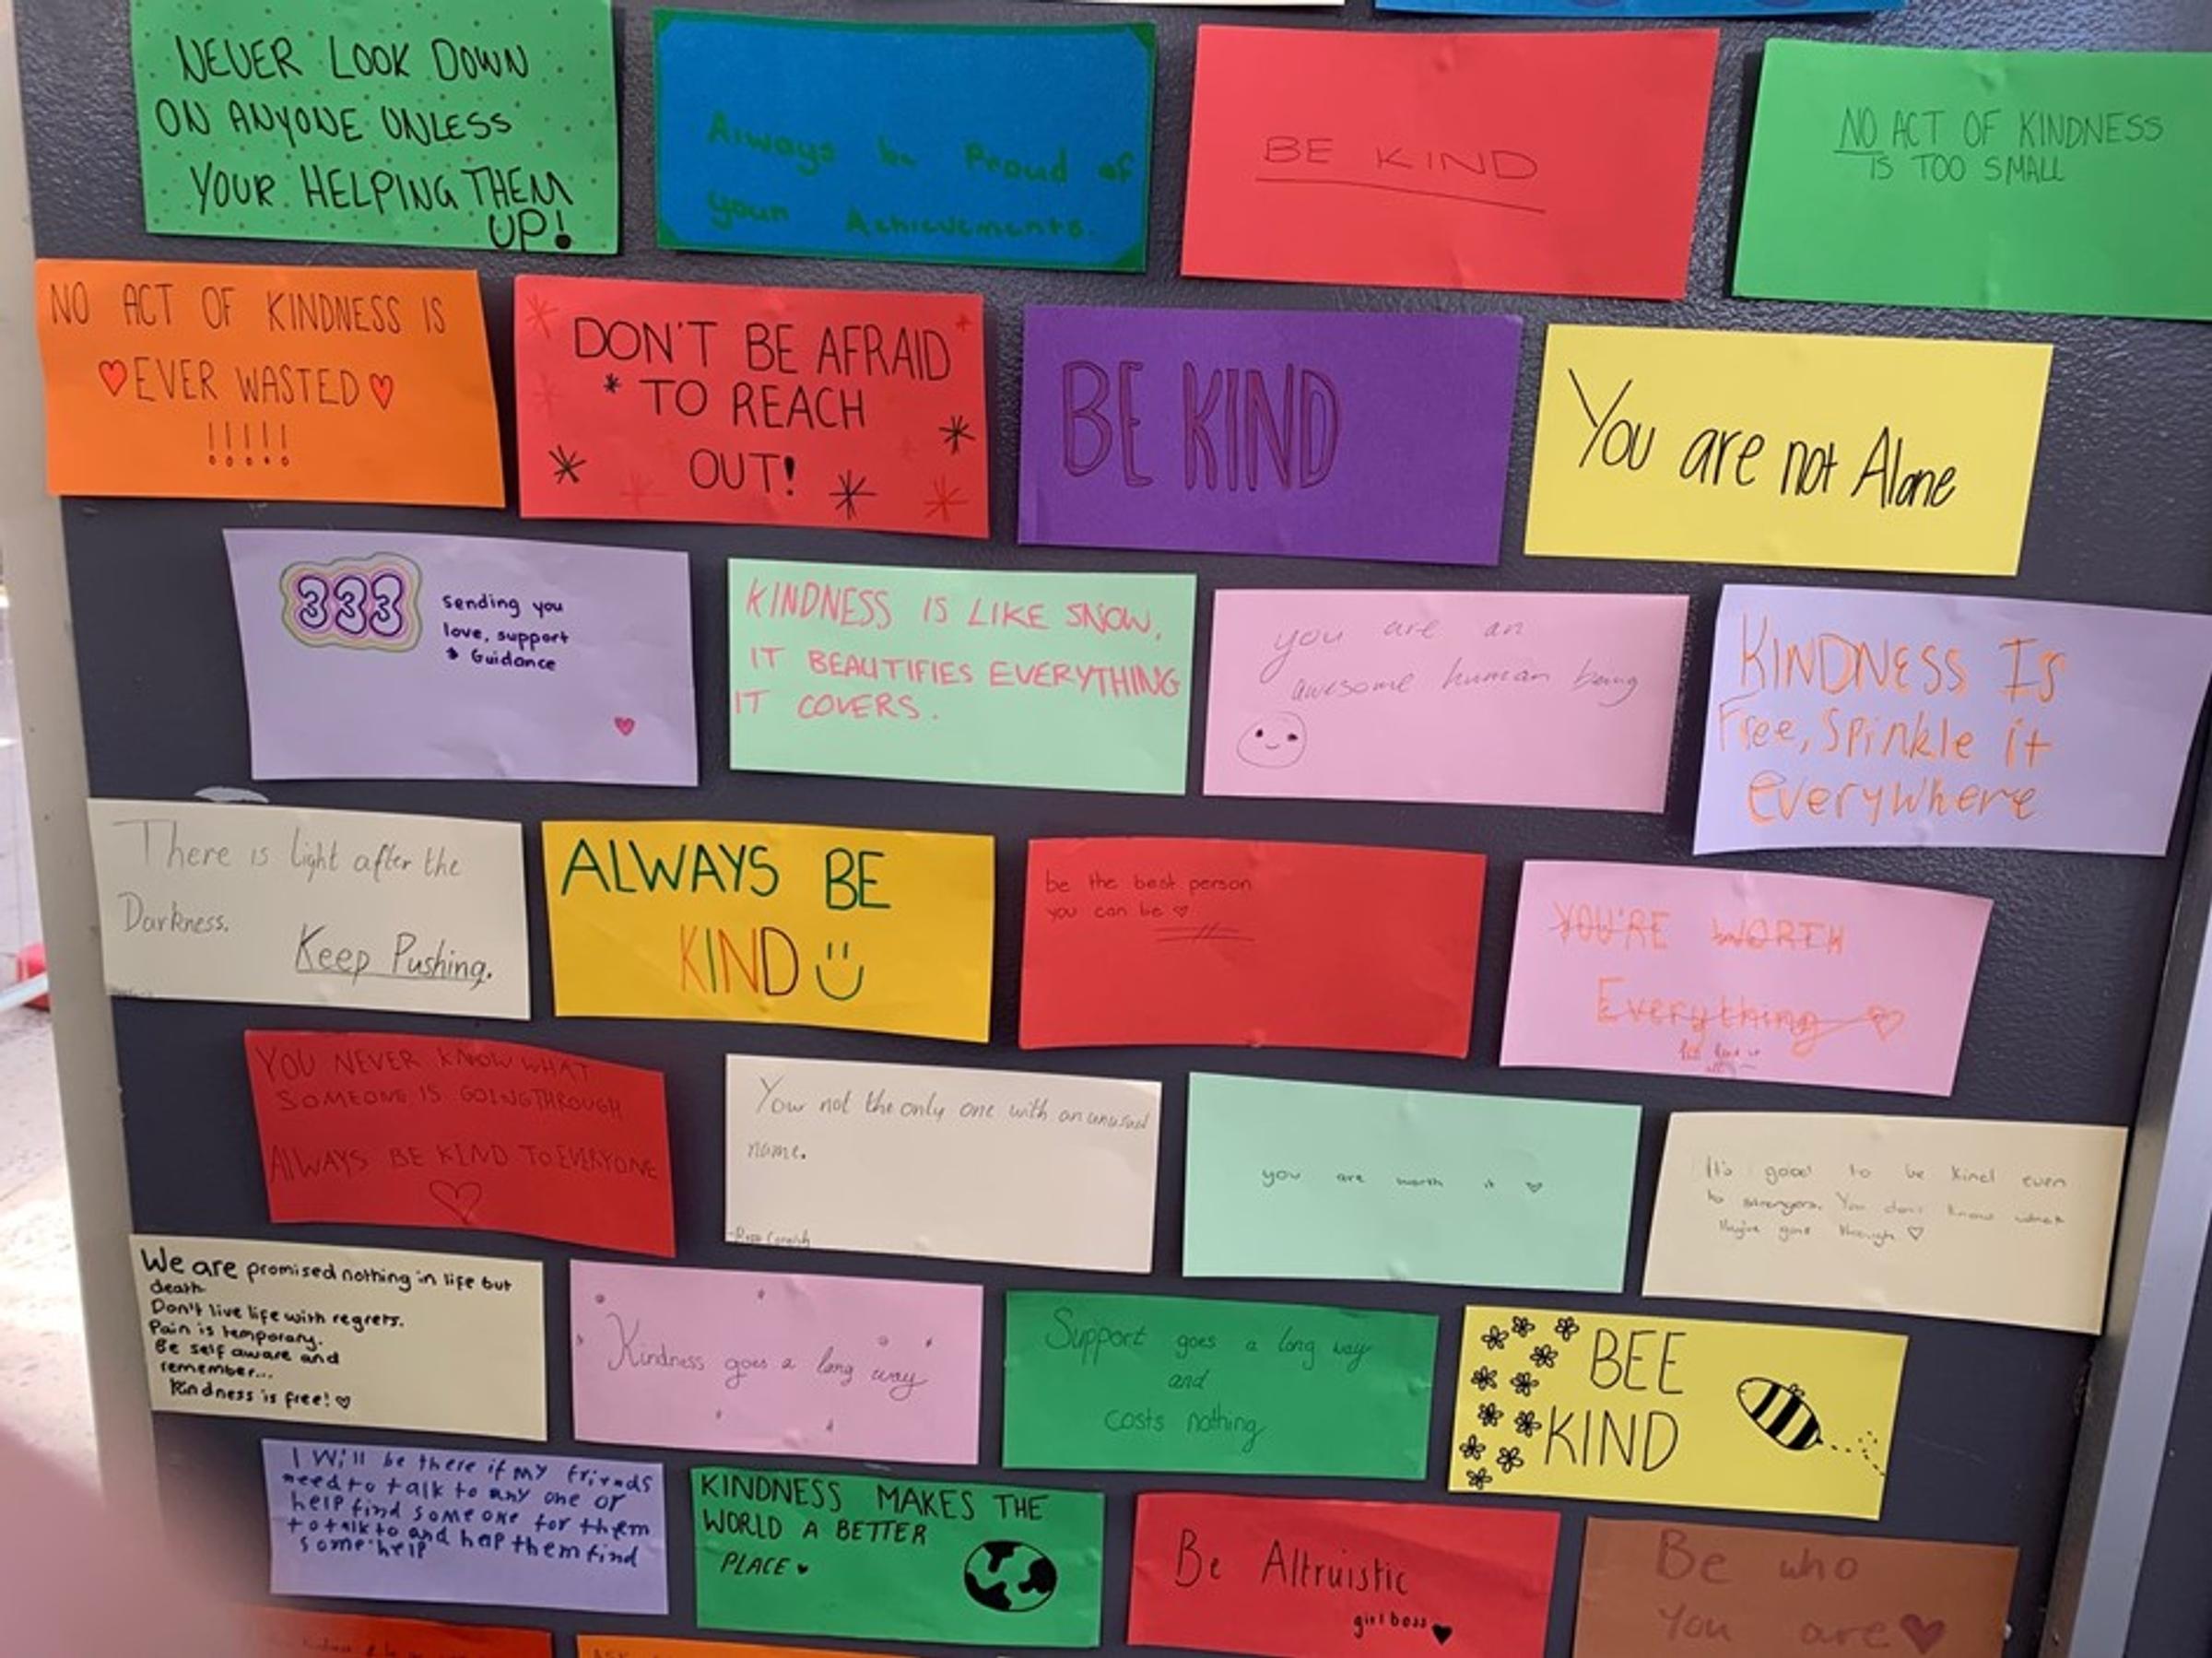 NEVER LOOK DOWN
ON ANYONE UNLESS
YOUR HELPING THEM
UP!
Always be Proud of
your Achievements.
BE KIND
NO ACT OF KINDNESS
IS TOO SMALL
NO ACT OF KINDNESS IS
EVER WASTED
!!!!!
DON'T BE AFRAID
TO REACH
OUT!
BE KIND
You are not Alone
333
Sending you
love, support
& Guidance
KINDNESS IS LIKE SNOW,
IT BEAUTIFIES EVERYTHING
IT COVERS.
you are an
awesome human being
KINDNESS IS
Free, Spinkle it
everywhere
There is light after the
Darkness.
Keep Pushing.
ALWAYS BE
KIND
be the best person
you can be
YOU'RE WORTH
Everything
YOU NEVER KNOW WHAT
SOMEONE IS GOING THROUGH
ALWAYS BE KIND TO EVERYONE
Your not the only one with an unusual
name.
you are worth it
It's good to be kind even
to strangers. You don't know what
they've gone through
We are promised nothing in life but
death.
Don't live life with regrets.
Pain is temporary.
Be self aware and
remember...
Kindness is free!
Kindness goes a long way
Support goes a long way
and
costs nothing
BEE
KIND
I Will be there if my friends
need to talk to any one or
help find someone for them
to talk to and help them find
some help
KINDNESS MAKES THE
WORLD A BETTER
PLACE
Be Altruistic
girl boss
Be who
You are